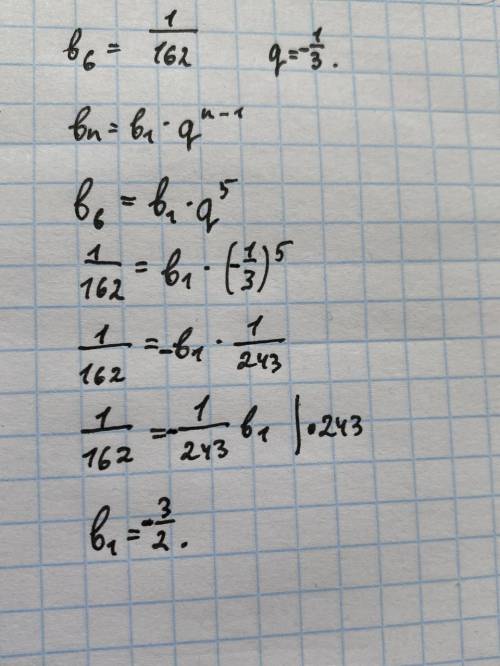 в₆ = 1/162 q = -1/3.
вn = в₁ · q^(n-1)
в₆ = в₁ · q^5
1/162 = в₁ · (-1/3)^5
1/162 = -в₁ · 1/243
1/162 = -1/243 в₁ | · 243
в₁ = -3/2.